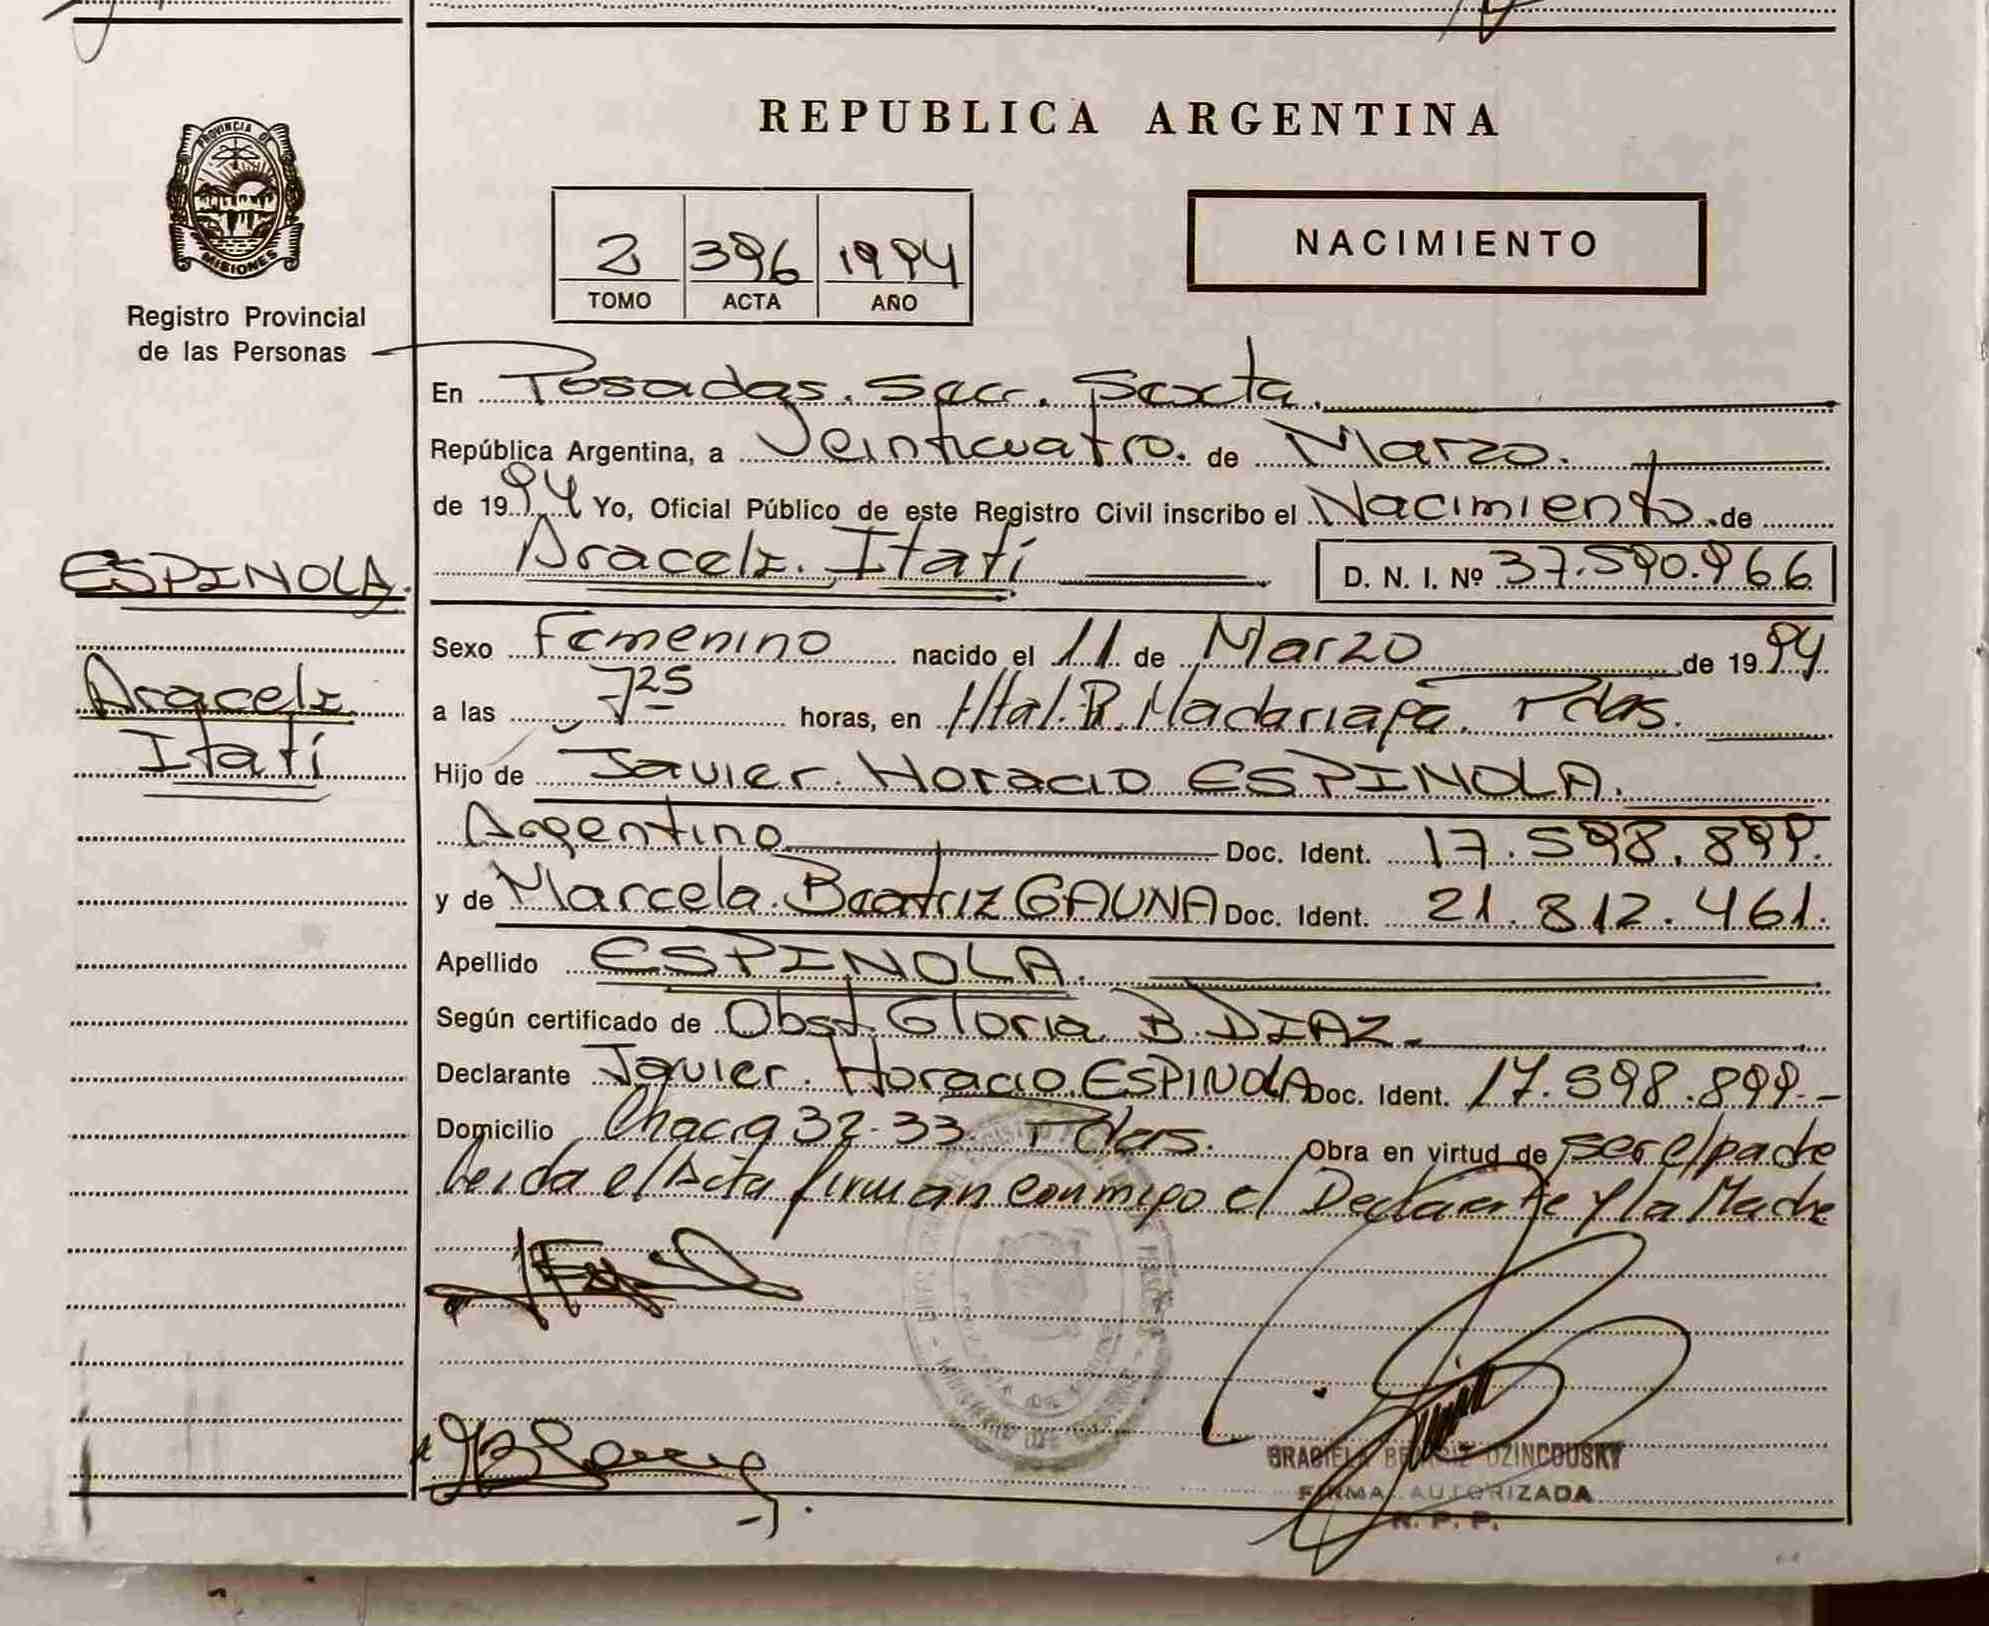 REPUBLICA ARGENTINA
PROVINCIA DE
MISIONES
Registro Provincial
de las Personas
2 396 1994
TOMO ACTA AÑO
NACIMIENTO
En Posadas. Secc. Sexta.
República Argentina, a Veinticuatro. de Marzo.
de 1994 Yo, Oficial Público de este Registro Civil inscribo el Nacimiento de
Araceli. Itatí D. N. I. Nº 37.590.966
ESPINOLA.
Araceli
Itatí
Sexo Femenino nacido el 11 de Marzo de 1994
a las 7 25 horas, en Htal. R. Madariaga. Pdas.
Hijo de Javier. Horacio ESPINOLA.
Argentino Doc. Ident. 17.598.899.
y de Marcela. Beatriz GAUNA Doc. Ident. 21.812.461.
Apellido ESPINOLA.
Según certificado de Obst. Gloria B. DIAZ.
Declarante Javier. Horacio. ESPINOLA Doc. Ident. 17.598.899.-
Domicilio Chacra 32-33. Pdas. Obra en virtud de ser el padre
Leida el Acta firman conmigo el Declarante y la Madre
GRACIELA BEATRIZ DZINCOUSKY
FIRMA AUTORIZADA
R. P. P.